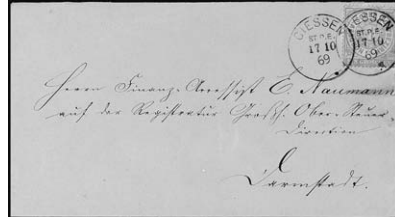 GIESSEN
ST.P.E.
17 10
69
GIESSEN
ST.P.E.
17 10
69
Herrn Finanz-Accessist E. Naumann
auf der Registratur Großh. Ober-Steuer-
Direction
Darmstadt.